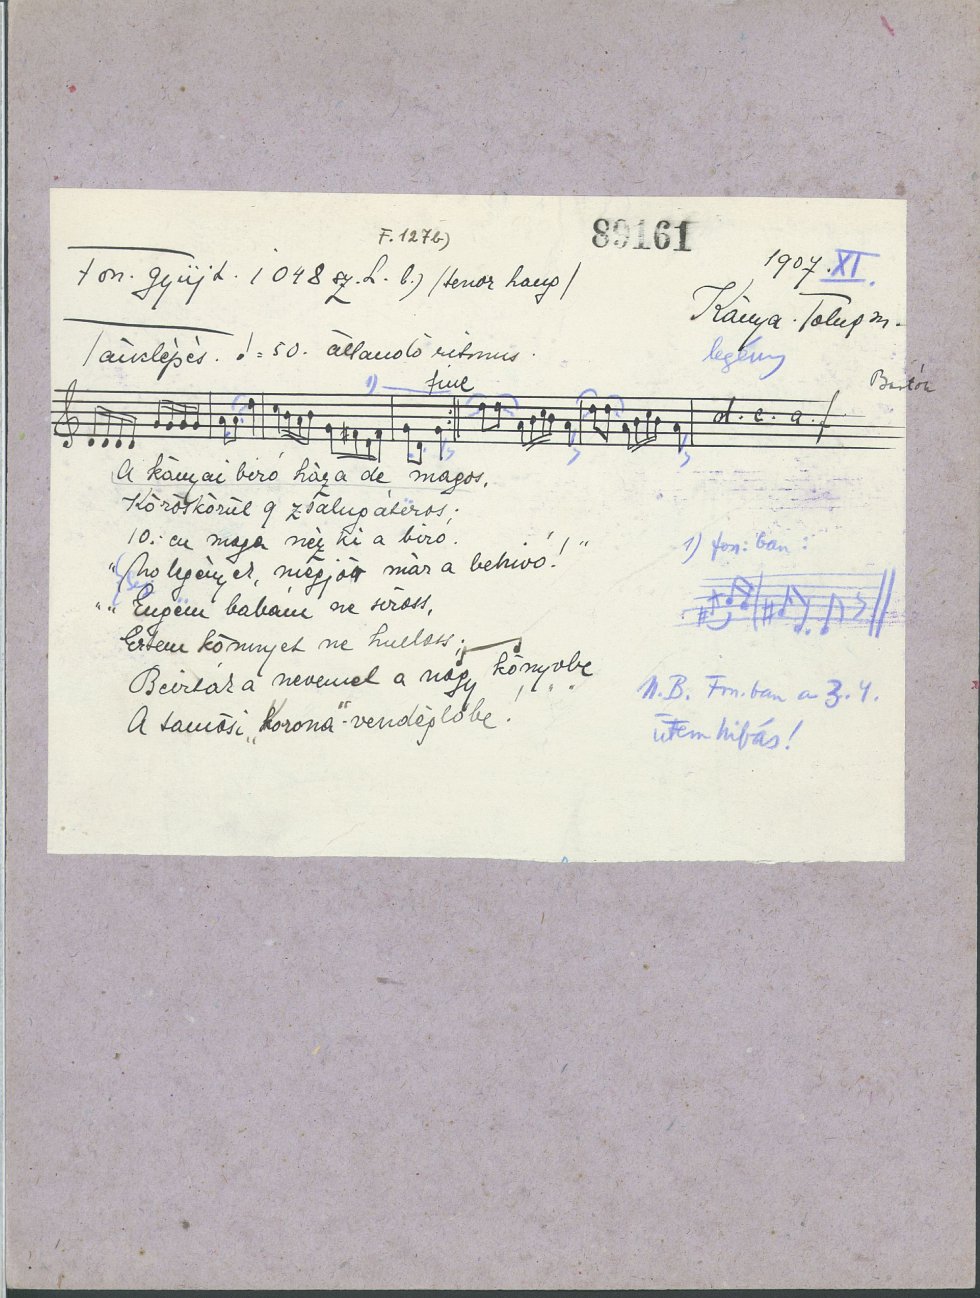 F. 127b)
89161
fon. gyüjt. 1048 sz. L. b.) (tenor hang)
1907. XI.
Kánya. Tolna m.
legény
Bartók
Tánclépés. = 50. állandó ritmus.
1)
fine
d. c. a. f
A kányai biró háza de magos,
Köröskörül 9
10. en maga néz ki a biró.
"No legények, mégjött már a behivó!"
"" Engem babám ne sirass,
Értem könnyet ne hullass;
Beirták a nevemet a nagy könyvbe
A tamási "Korona"-vendéglőbe!""
1) fon: ban:
N.B. Fon. ban a 3. 4.
ütem hibás!